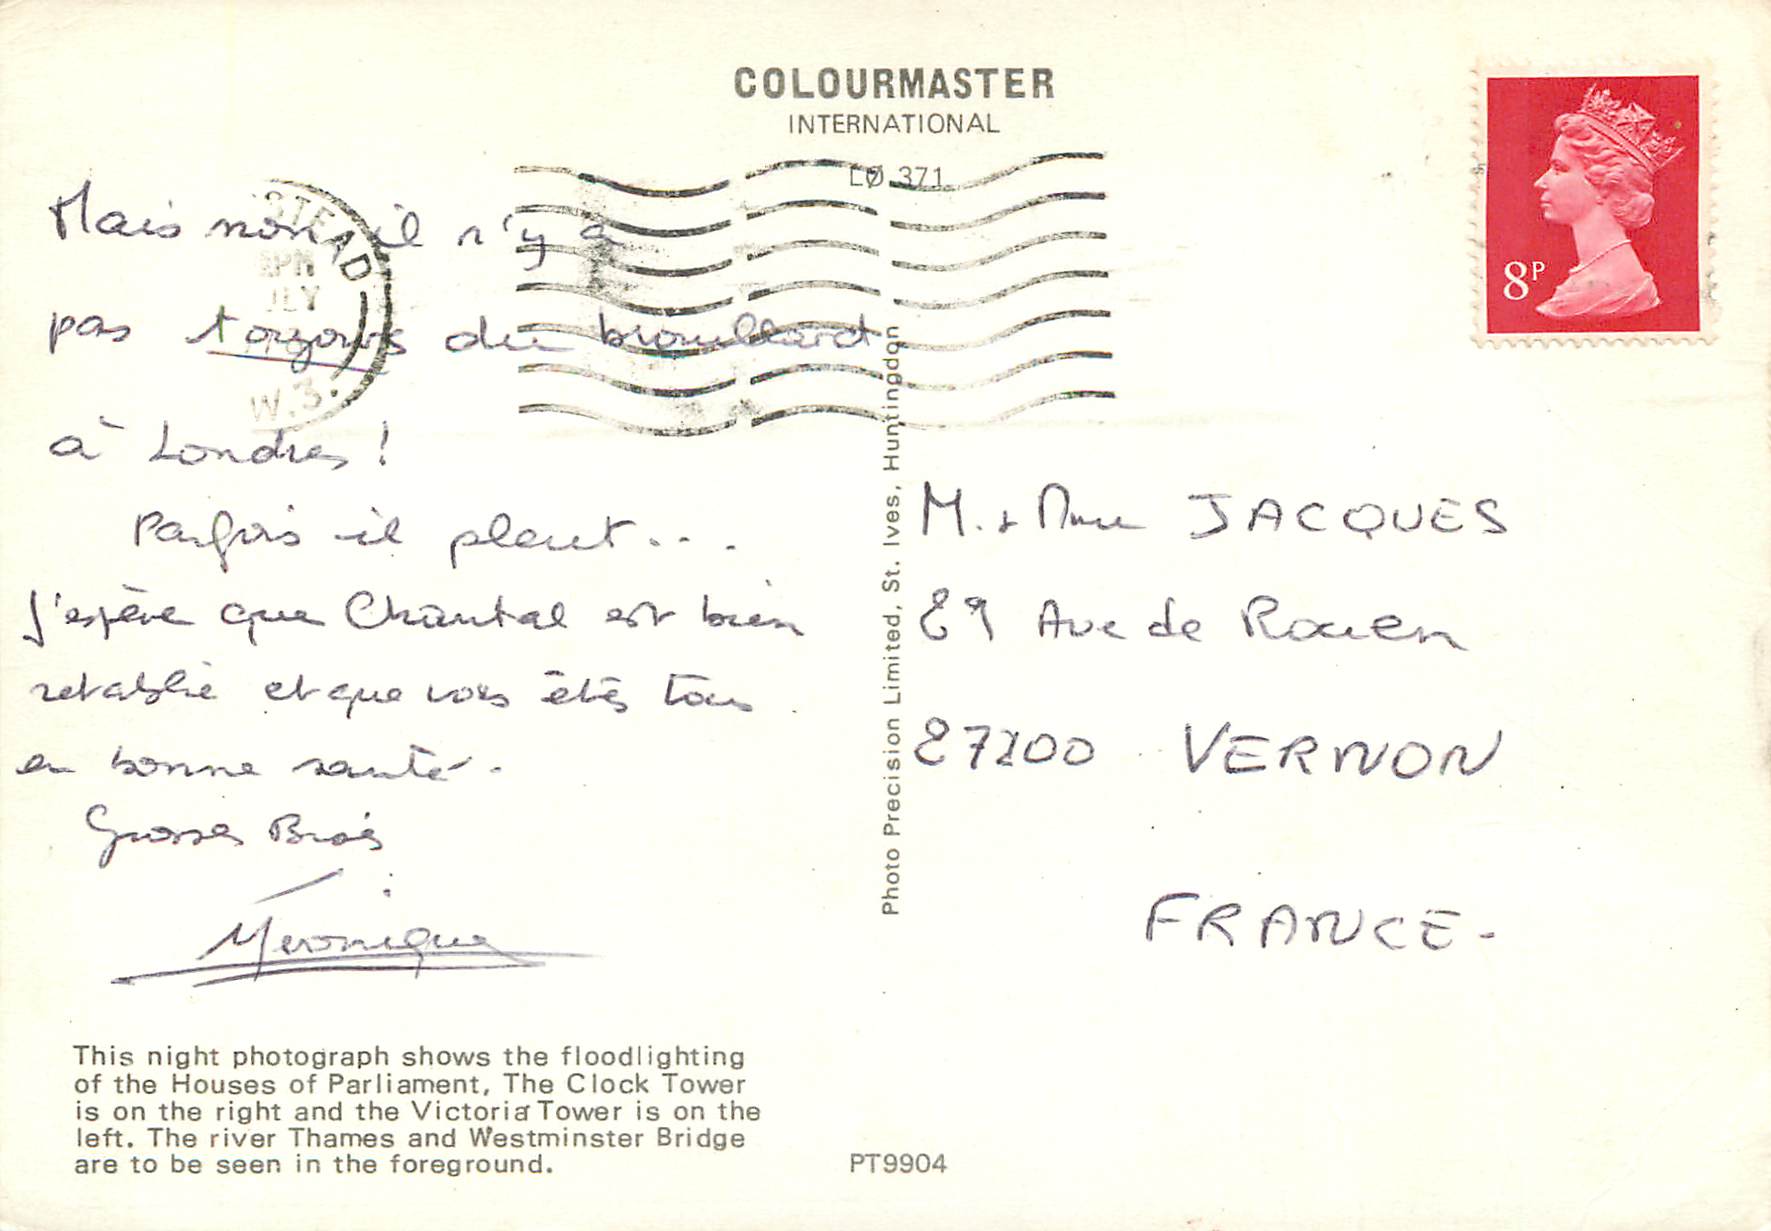 COLOURMASTER
INTERNATIONAL
LØ 371
STEAD
PM
JLY
W.3.
8P
Mais non il n'y a
pas toujours du brouillard
à Londres !
Parfois il pleut...
J'espère que Chantal est bien
retablie et que vous êtes tous
en bonne santé.
Grosses Bises
Véronique
M. & Mme JACQUES
29 Ave de Rouen
27200 VERNON
FRANCE-
Photo Precision Limited, St. Ives, Huntingdon
This night photograph shows the floodlighting
of the Houses of Parliament, The Clock Tower
is on the right and the Victoria Tower is on the
left. The river Thames and Westminster Bridge
are to be seen in the foreground.
PT9904